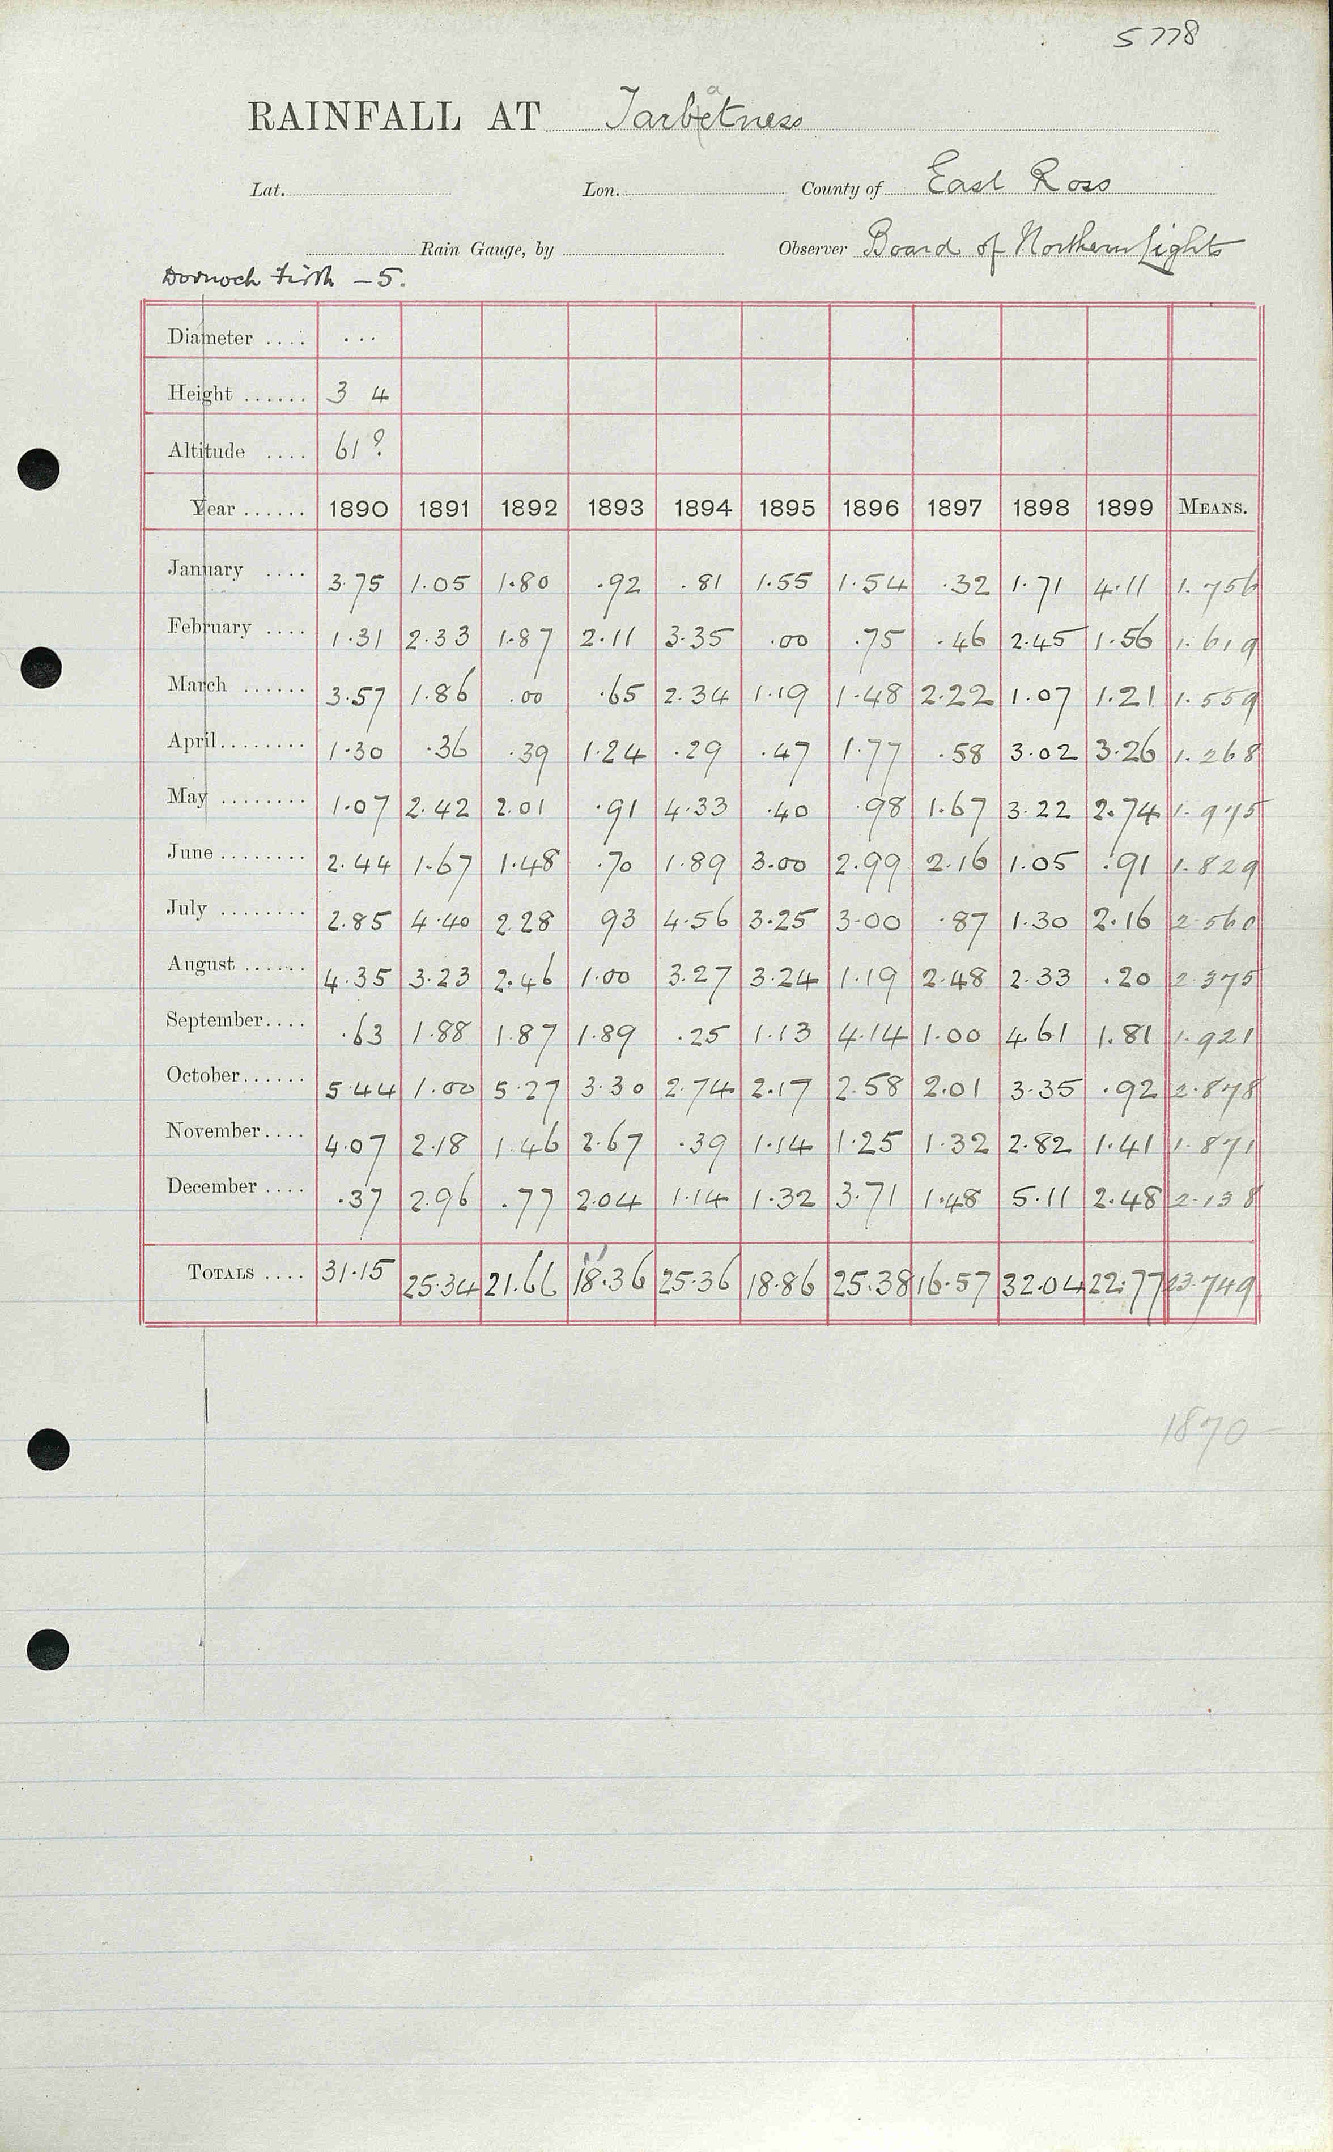 5778
RAINFALL AT Tarbatness
Lat. Lon. County of East Ross
Rain Gauge, by Observer Board of Northern Lights
Dornoch Firth – 5.
Diameter .... ...
Height ...... 3 4
Altitude .... 61 ?
Year ...... 1890 1891 1892 1893 1894 1895 1896 1897 1898 1899 MEANS.
January .... 3.75 1.05 1.80 .92 .81 1.55 1.54 .32 1.71 4.11 1.756
February .... 1.31 2.33 1.87 2.11 3.35 .00 .75 .46 2.45 1.56 1.619
March ...... 3.57 1.86 .00 .65 2.34 1.19 1.48 2.22 1.07 1.21 1.559
April........ 1.30 .36 .39 1.24 .29 .47 1.77 .58 3.02 3.26 1.268
May ........ 1.07 2.42 2.01 .91 4.33 .40 .98 1.67 3.22 2.74 1.975
June ........ 2.44 1.67 1.48 .70 1.89 3.00 2.99 2.16 1.05 .91 1.829
July ........ 2.85 4.40 2.28 93 4.56 3.25 3.00 .87 1.30 2.16 2.560
August ...... 4.35 3.23 2.46 1.00 3.27 3.24 1.19 2.48 2.33 .20 2.375
September.... .63 1.88 1.87 1.89 .25 1.13 4.14 1.00 4.61 1.81 1.921
October...... 5.44 1.00 5.27 3.30 2.74 2.17 2.58 2.01 3.35 .92 2.878
November.... 4.07 2.18 1.46 2.67 .39 1.14 1.25 1.32 2.82 1.41 1.871
December .... .37 2.96 .77 2.04 1.14 1.32 3.71 1.48 5.11 2.48 2.138
TOTALS .... 31.15 25.34 21.66 18.36 25.36 18.86 25.38 16.57 32.04 22.77 23.749
1870 –